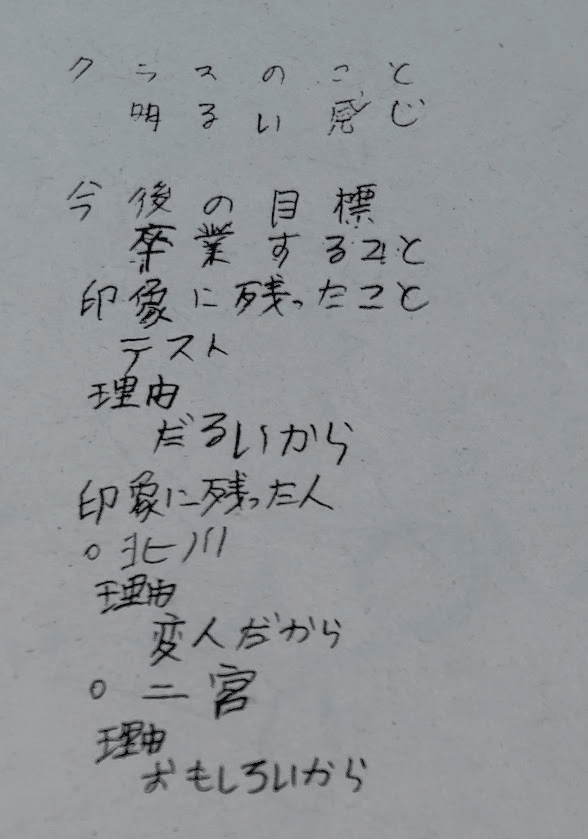 クラスのこと
明るい感じ
今後の目標
卒業すること
印象に残ったこと
テスト
理由
だるいから
印象に残った人
○北川
理由
変人だから
○二宮
理由
おもしろいから